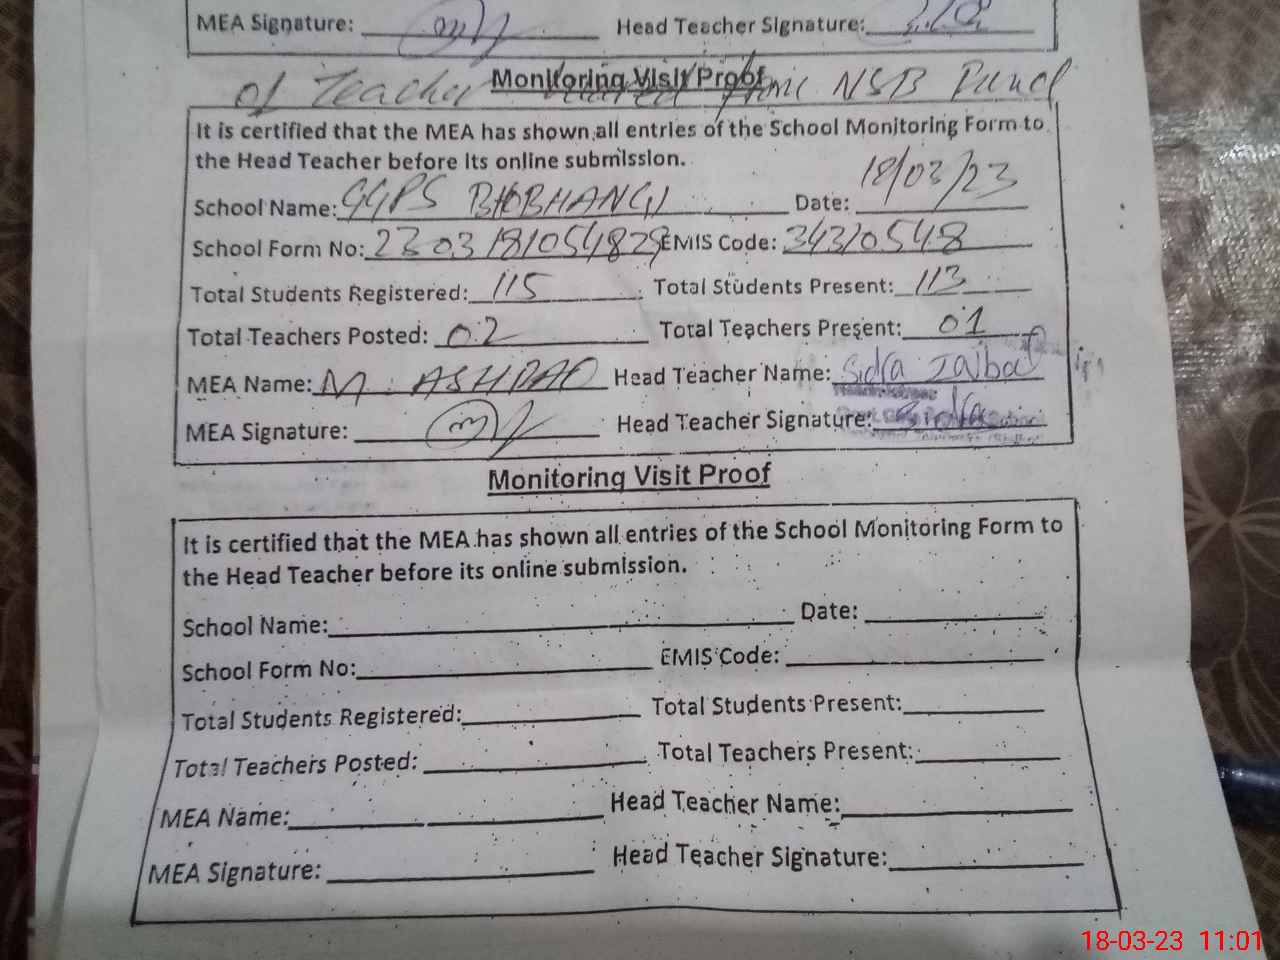 MEA Signature: Head Teacher Signature:
Monitoring Visit Proof
of Teacher from NSB Fund
It is certified that the MEA has shown all entries of the School Monitoring Form to
the Head Teacher before its online submission.
School Name: GGPS BHOBHANGI Date: 18/03/23
School Form No: 230318/054829 EMIS Code: 34310548
Total Students Registered: 115 Total Students Present: 113
Total Teachers Posted: 02 Total Teachers Present: 01
MEA Name: M. ASHRAF Head Teacher Name: Sidra Iqbal
MEA Signature: Head Teacher Signature: Sidra
Monitoring Visit Proof
It is certified that the MEA has shown all entries of the School Monitoring Form to
the Head Teacher before its online submission.
School Name: Date:
School Form No: EMIS Code:
Total Students Registered: Total Students Present:
Total Teachers Posted: Total Teachers Present:
MEA Name: Head Teacher Name:
MEA Signature: Head Teacher Signature:
18-03-23 11:01